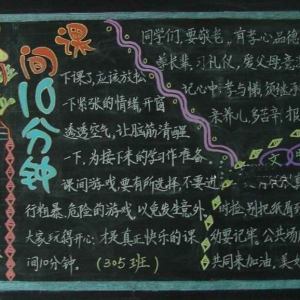 课间10分钟
下课了,应该放松
一下紧张的情绪,开窗
透透空气,让脑筋清醒
一下,为接下来的学习作准备。
课间游戏要有所选择,不要进
行粗暴、危险的游戏,以免发生意外,
大家玩得开心,才是真正快乐的课
间10分钟。(305班)
同学们,要敬老,有孝心,品德
尊长辈,习礼仪,爱父母,
记心中,孝与悌,须继承
亲养儿,多苦辛,报
文
时捡,别把纸屑
幼要记牢。公共场
共同来加油,美好